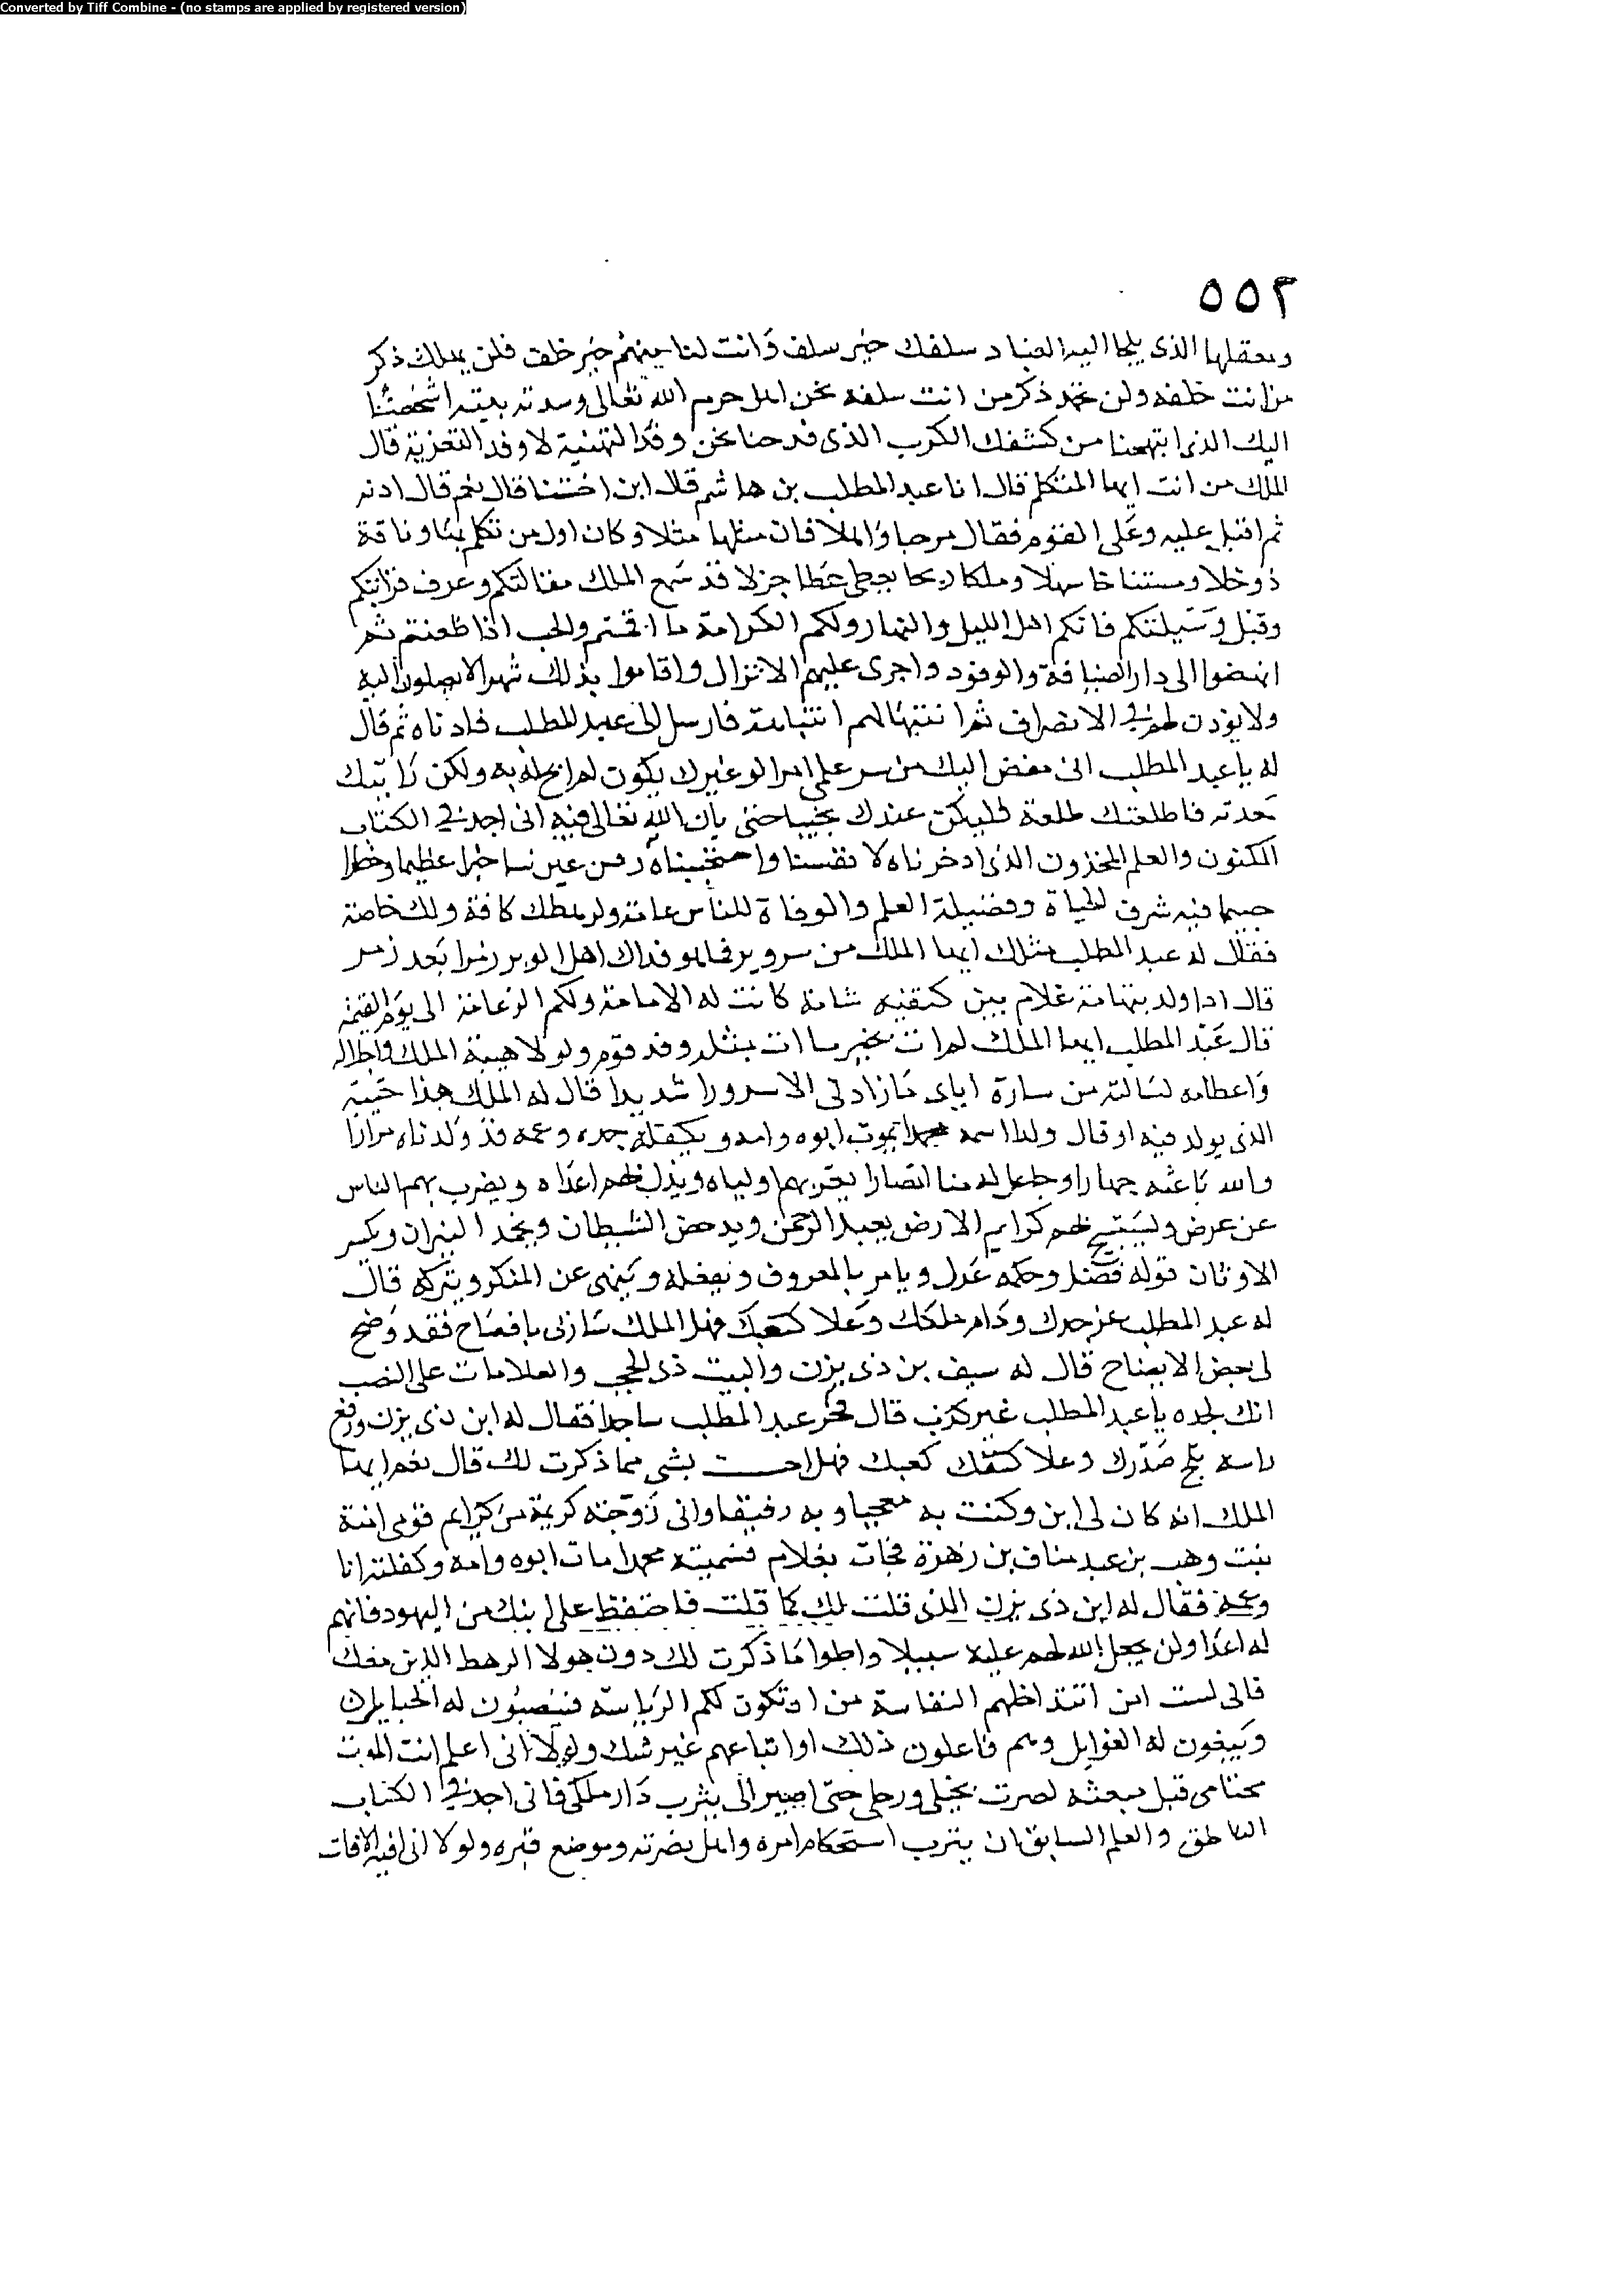 Converted by Tiff Combine - (no stamps are applied by registered version)
٥٥٣
ومعقلها الذى يلجا اليه العباد سلفك خير سلف وانت لنا منهم خير خلف فلن يهلك ذكر
من انت خلفه ولن يخمد ذكر من انت سلفه نحن اهل حرم الله تعالى وسدنة بيته اشخصنا
اليك الذى ابتهجنا من كشفك الكرب الذى فدحنا نحن وفد التهنية لا وفد التعزية قال
الملك من انت ايها المتكلم قال انا عبد المطلب بن هاشم قال ابن اختنا قال نعم قال ادنه
ثم اقبل عليه وعلى القوم فقال مرحبا واهلا فان مثلها مثلا وكان اول من تكلم بها وناقة
ورحلا ومستناخا سهلا وملكا ربحا يعطى عطا جزلا قد سمع الملك مقالتكم وعرف قرابتكم
وقبل وسيلتكم فانكم اهل الليل والنهار ولكم الكرامة ما اقمتم والحب اذا ظعنتم ثم
انهضوا الى دار الضيافة والوفود واجرى عليهم الانزال واقاموا بذلك شهرا لا يصلون اليه
ولا يوذن لهم فى الانصراف ثم انتبه لهم انتباهة فارسل الى عبد المطلب فادناه ثم قال
له يا عبد المطلب انى مفض اليك من سر علمى امرا لو غيرك يكون لم ابح له به ولكن رايتك
معدنه فاطلعتك طلعة فليكن عندك مخبيا حتى ياذن الله تعالى فيه انى اجد فى الكتاب
المكنون والعلم المخزون الذى ادخرناه لانفسنا واحتجبناه دون غيرنا خبرا عظيما وخطرا
جسيما فيه شرف الحياة وفضيلة العلم والوفاة للناس عامة ولرهطك كافة ولك خاصة
فقال له عبد المطلب مثلك ايها الملك من سر وبر فما هو فداك اهل الوبر زمرا بعد زمر
قال اذا ولد بتهامة غلام بين كتفيه شامة كانت له الامامة ولكم الزعامة الى يوم القيمة
قال عبد المطلب ايها الملك لم ات بخبر ما ات بمثله وفد قوم ولولا هيبة الملك واجلاله
واعظامه لسالته من سارة اياى ما زادنى الا سرورا شديدا قال له الملك هذا حينه
الذى يولد فيه او قال ولد اسمه محمد يموت ابوه وامه ويكفله جده وعمه قد ولدناه مرارا
والله باعثه جهارا وجاعل له منا انصارا يعز بهم اولياه ويذل لهم اعداه ويضرب بهم الناس
عن عرض وليستبيح لهم كرايم الارض يعبد الرحمن ويدحض الشيطان ويخمد النيران ويكسر
الاوثان قوله فصل وحكمه عدل ويامر بالمعروف ويفعله وينهى عن المنكر ويتركه قال
له عبد المطلب عز جدك ودام ملكك وعلا كعبك فهل الملك سارنى بافصاح فقد وضح
لى بعض الايضاح قال له سيف بن ذى يزن والبيت ذى الحجب والعلامات على النصب
انك لجده يا عبد المطلب غير كذب قال فخر عبد المطلب ساجدا فقال له ابن ذى يزن ورفع
راسه ثلج صدرك وعلا كعبك فهل احست بشى مما ذكرت لك قال نعم ايها
الملك انه كان لى ابن وكنت به معجبا وبه رفيقا وانى زوجته كريمة من كرايم قومى امنة
بنت وهب بن عبد مناف بن زهرة فجات بغلام فسميته محمدا مات ابوه وامه وكفلته انا
وعمه فقال له ابن ذى يزن الذى قلت لك كما قلت فاحتفظ على ابنك من اليهود فانهم
له اعدا ولن يجعل الله لهم عليه سبيلا واطوا ما ذكرت لك دون هولا الرهط الذين معك
فانى لست امن ان تتداخلهم النفاسة من ان تكون لكم الرياسة فينصبون له الحبايل
ويبغون له الغوايل وهم فاعلون ذلك او اتباعهم غير شك ولولا انى اعلم انت الموت
مجتاحى قبل مبعثه لصرت بخيلى ورجلى حتى اصير الى يثرب دار ملكى فانى اجد فى الكتاب
الناطق والعلم السابق ان يثرب استحكام امره واهل نصرته وموضع قبره ولولا انى اقيه الافات